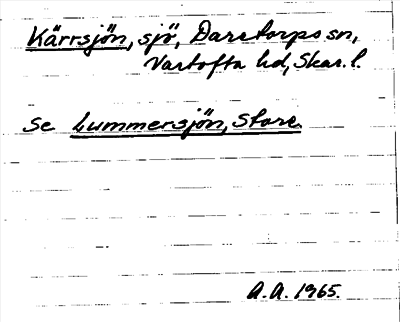 Kärrsjön, sjö, Daretorps sn,
Vartofta hd, Skar. l.
Se Lummersjön, Store
A.A. 1965.